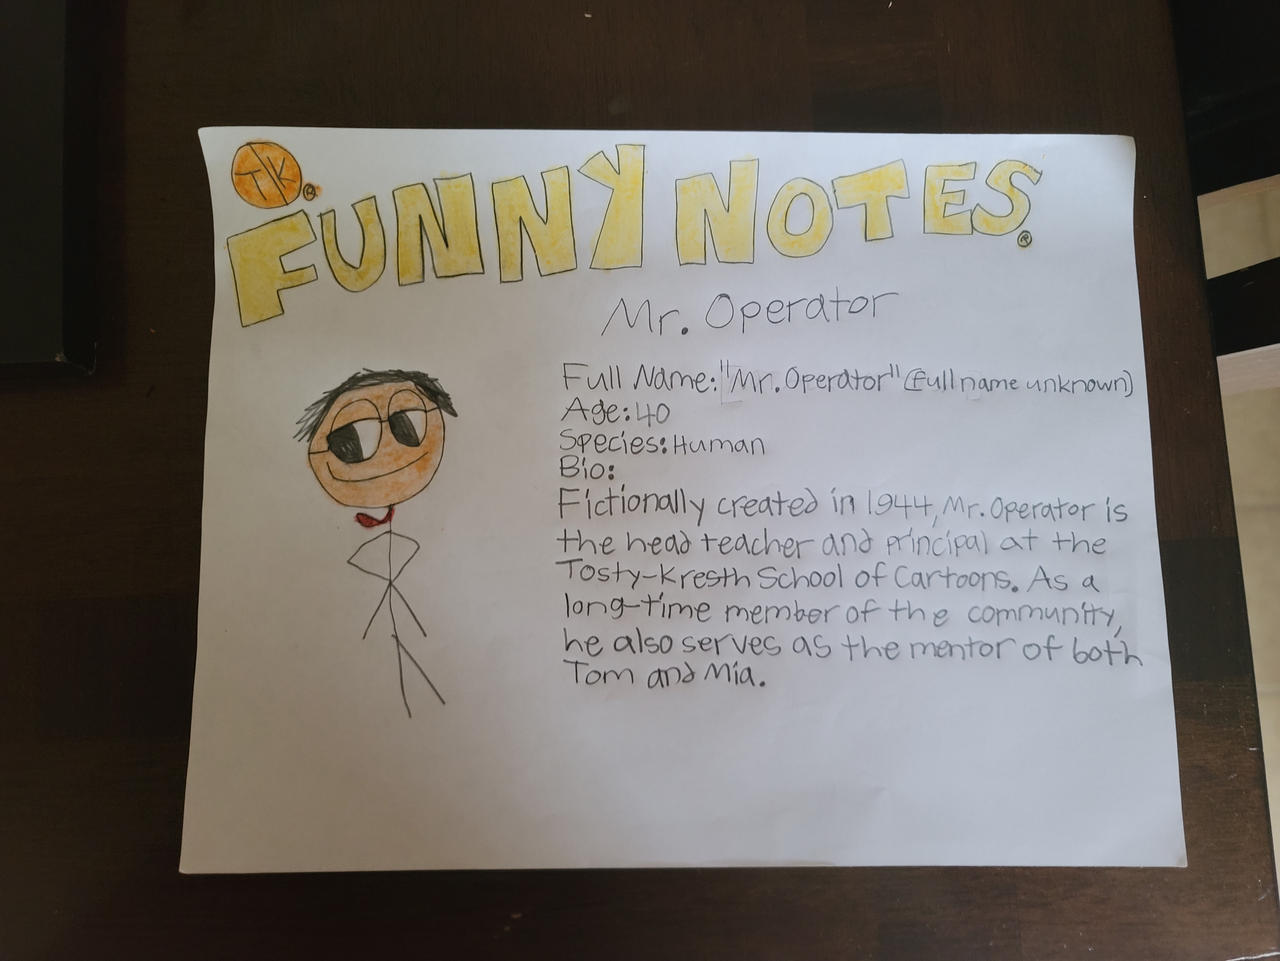 TK ®
FUNNY NOTES ®
Mr. Operator
Full Name: "Mr. Operator" (Full name unknown)
Age: 40
Species: Human
Bio:
Fictionally created in 1944, Mr. Operator is
the head teacher and principal at the
Tosty-Kresth School of Cartoons. As a
long-time member of the community,
he also serves as the mentor of both
Tom and Mia.